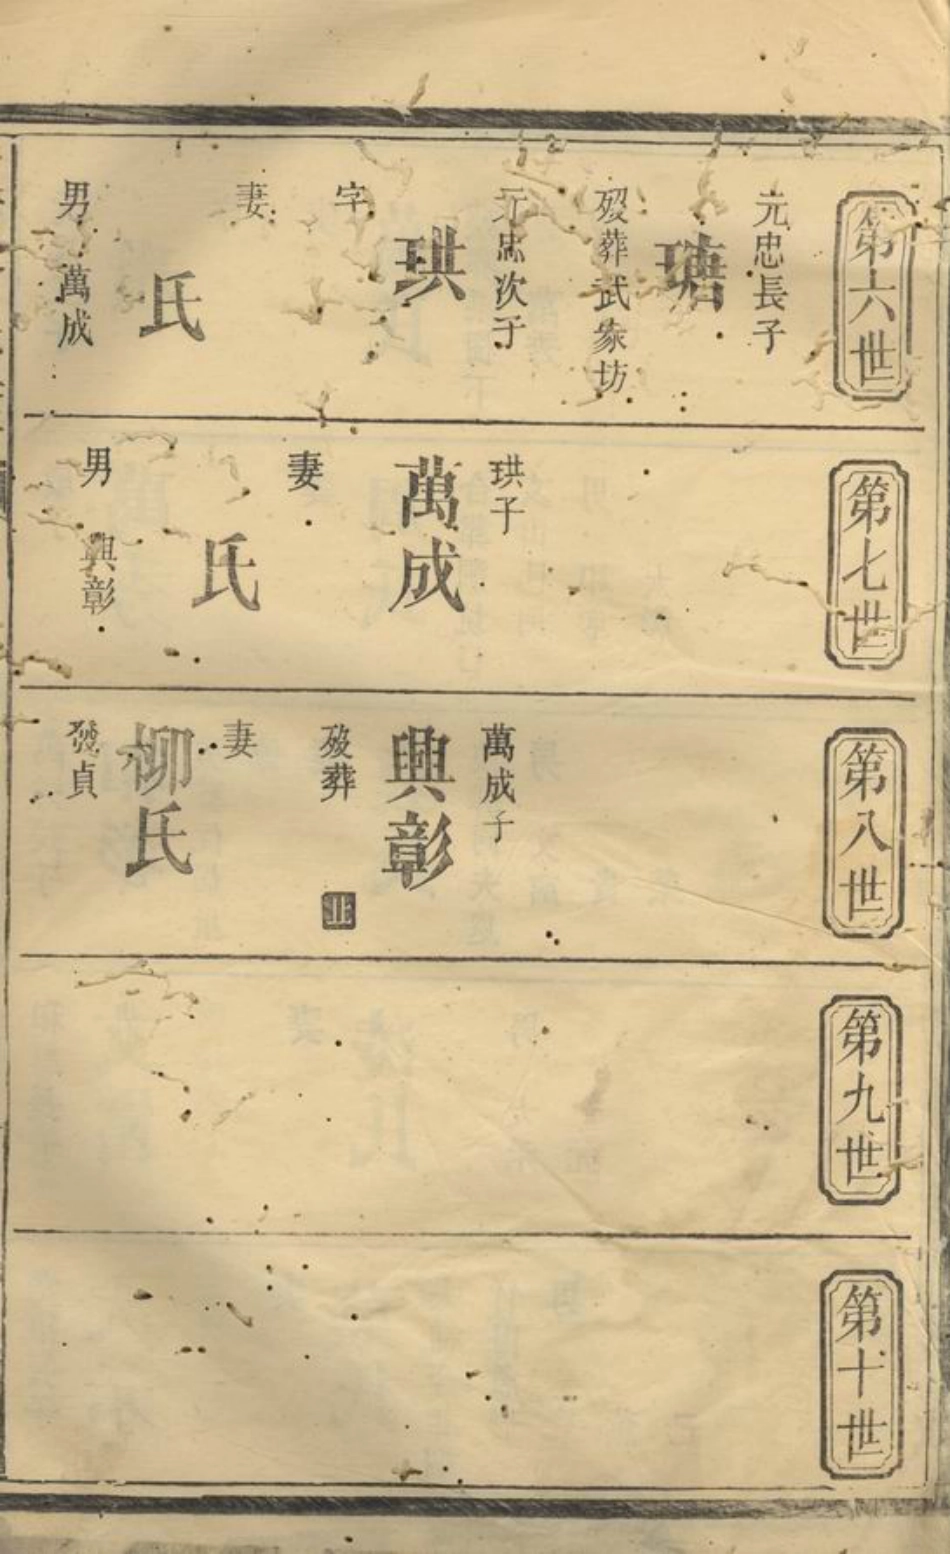 第六世
元忠長子
瑭
歿葬武家坊
元忠次子
珙
字
妻
氏
男 萬成
第七世
珙子
萬成
妻
氏
男 興彰
第八世
萬成子
興彰
歿葬
止
妻
柳氏
發貞
第九世
第十世